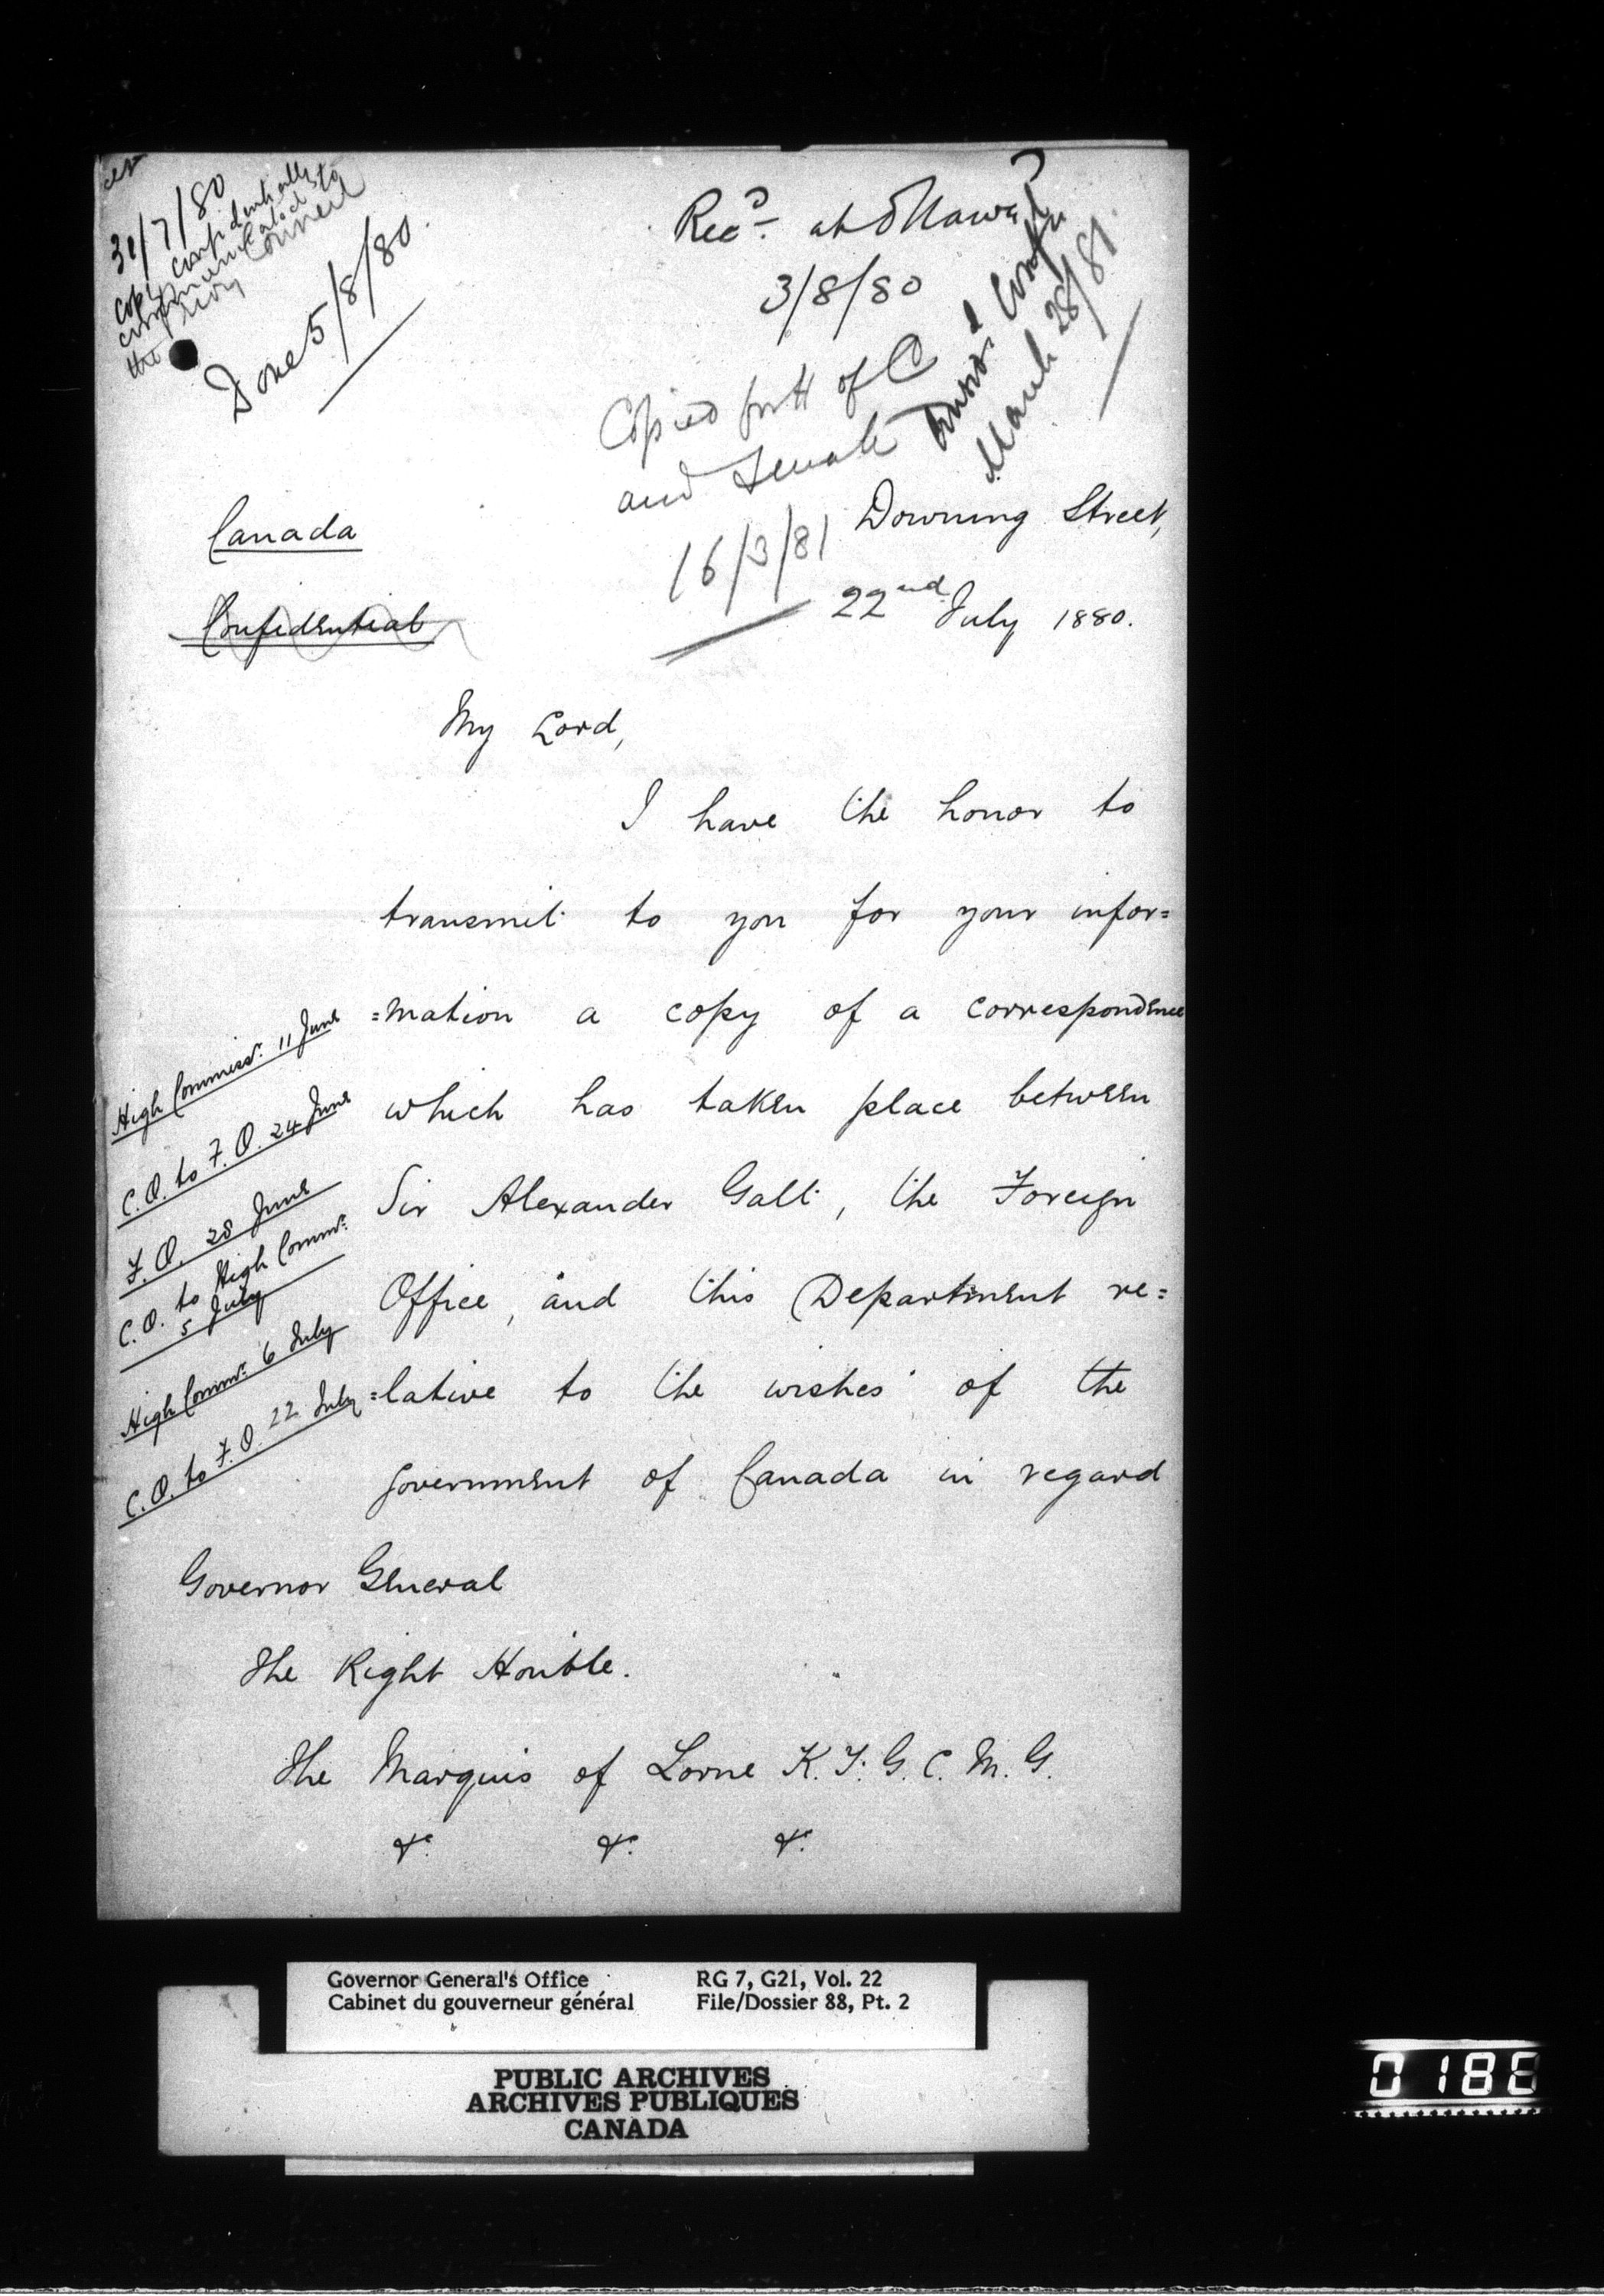 31/7/80
Copy confidentially
communicated to
the Privy Council
Done 5/8/80.
Recd. at Ottawa
3/8/80
Copied for H of C
and Senate
16/3/81
March 28/81.
Downing Street,
22nd July 1880.
Canada
Confidential
My Lord,
I have the honor to
transmit to you for your infor=
=mation a copy of a correspondence
which has taken place between
Sir Alexander Galt, the Foreign
Office, and this Department re=
=lative to the wishes of the
Government of Canada in regard
High Commissr. 11 June
C.O. to F.O. 24 June
F.O. 28 June
C.O. to High Commr.
5 July
High Commr. 6 July
C.O. to F.O. 22 July
Governor General
The Right Honble.
The Marquis of Lorne K.T. G.C.M.G.
&c. &c. &c.
Governor General's Office
Cabinet du gouverneur général
RG 7, G21, Vol. 22
File/Dossier 88, Pt. 2
PUBLIC ARCHIVES
ARCHIVES PUBLIQUES
CANADA